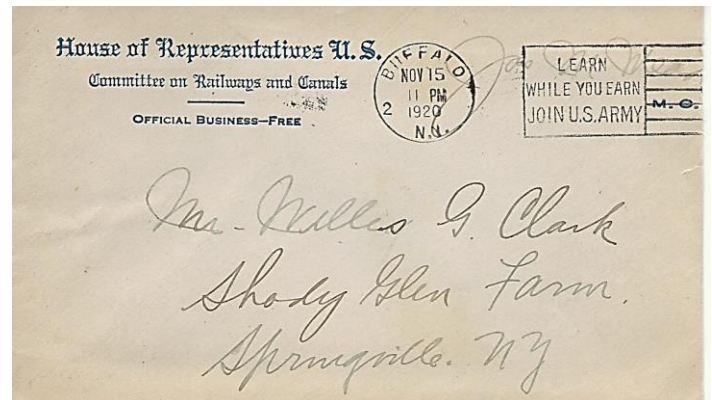 House of Representatives U.S.
Committee on Railways and Canals
OFFICIAL BUSINESS—FREE
BUFFALO
NOV 15
11 PM
2 1920
N.Y.
LEARN
WHILE YOU EARN
JOIN U.S. ARMY
M.C.
Mr. Willis G. Clark
Shady Glen Farm.
Springville. NY